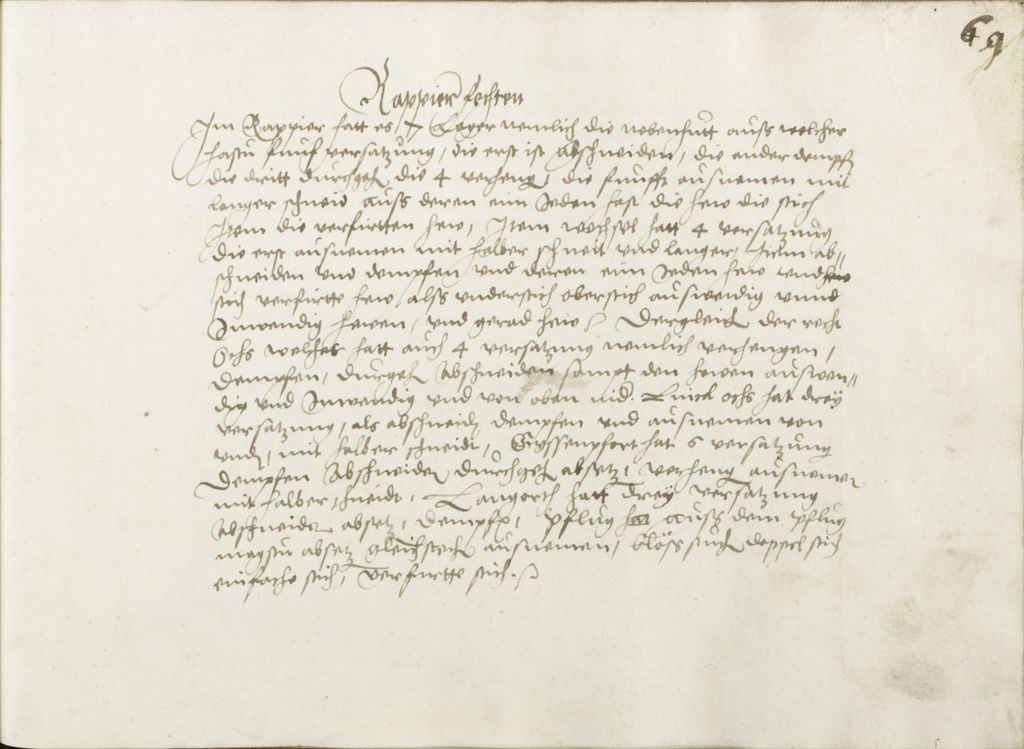 69
Rappier fechten
Im Rappier hatt es 7 Leger nemlich die nebenhutt auss welcher
hastu funf versatzung, die erst ist abschneiden, die ander dempfz
die dritt durchgeh, die 4 verheng, die funfft ausnemen mit
langer schneid auss deren eim Jeden hast die hew die stich
Item die verfürten hew, Item wechsel hatt 4 versatzung
die erst ausnemen mit halber schneit vnd langer, Item ab=
schneiden vnd dempfen vnd deren eim Jeden hew vnd
stich verfürte hew alss vnderstich oberstich auswendig vnnd
Inwendig hewen, vnd gerad hew Dergleich der recht
Ochs welches hatt auch 4 versatzung nemlich verhengen,
Dempfen, durchgeh Abschneiden sampt den hewen auswen=
dig vnd Inwendig vnd von oben nid. Linck ochs hat drey
versatzung, als abschneid, dempfen vnd ausnemen von
vnd, mit halber schneidt, Eyssenpfort hat 6 versatzung
Dempfen Abschneiden durchgeh absetz, verheng ausnemen
mit halber schneidt, Langorth hatt drey versatzung
Abschneiden absetz, dempfz, Pflug auss dem Pflug
magstu absetz gleichstech ausnemen, blöss such, doppel stich
einfache stich, verfürtte stich.